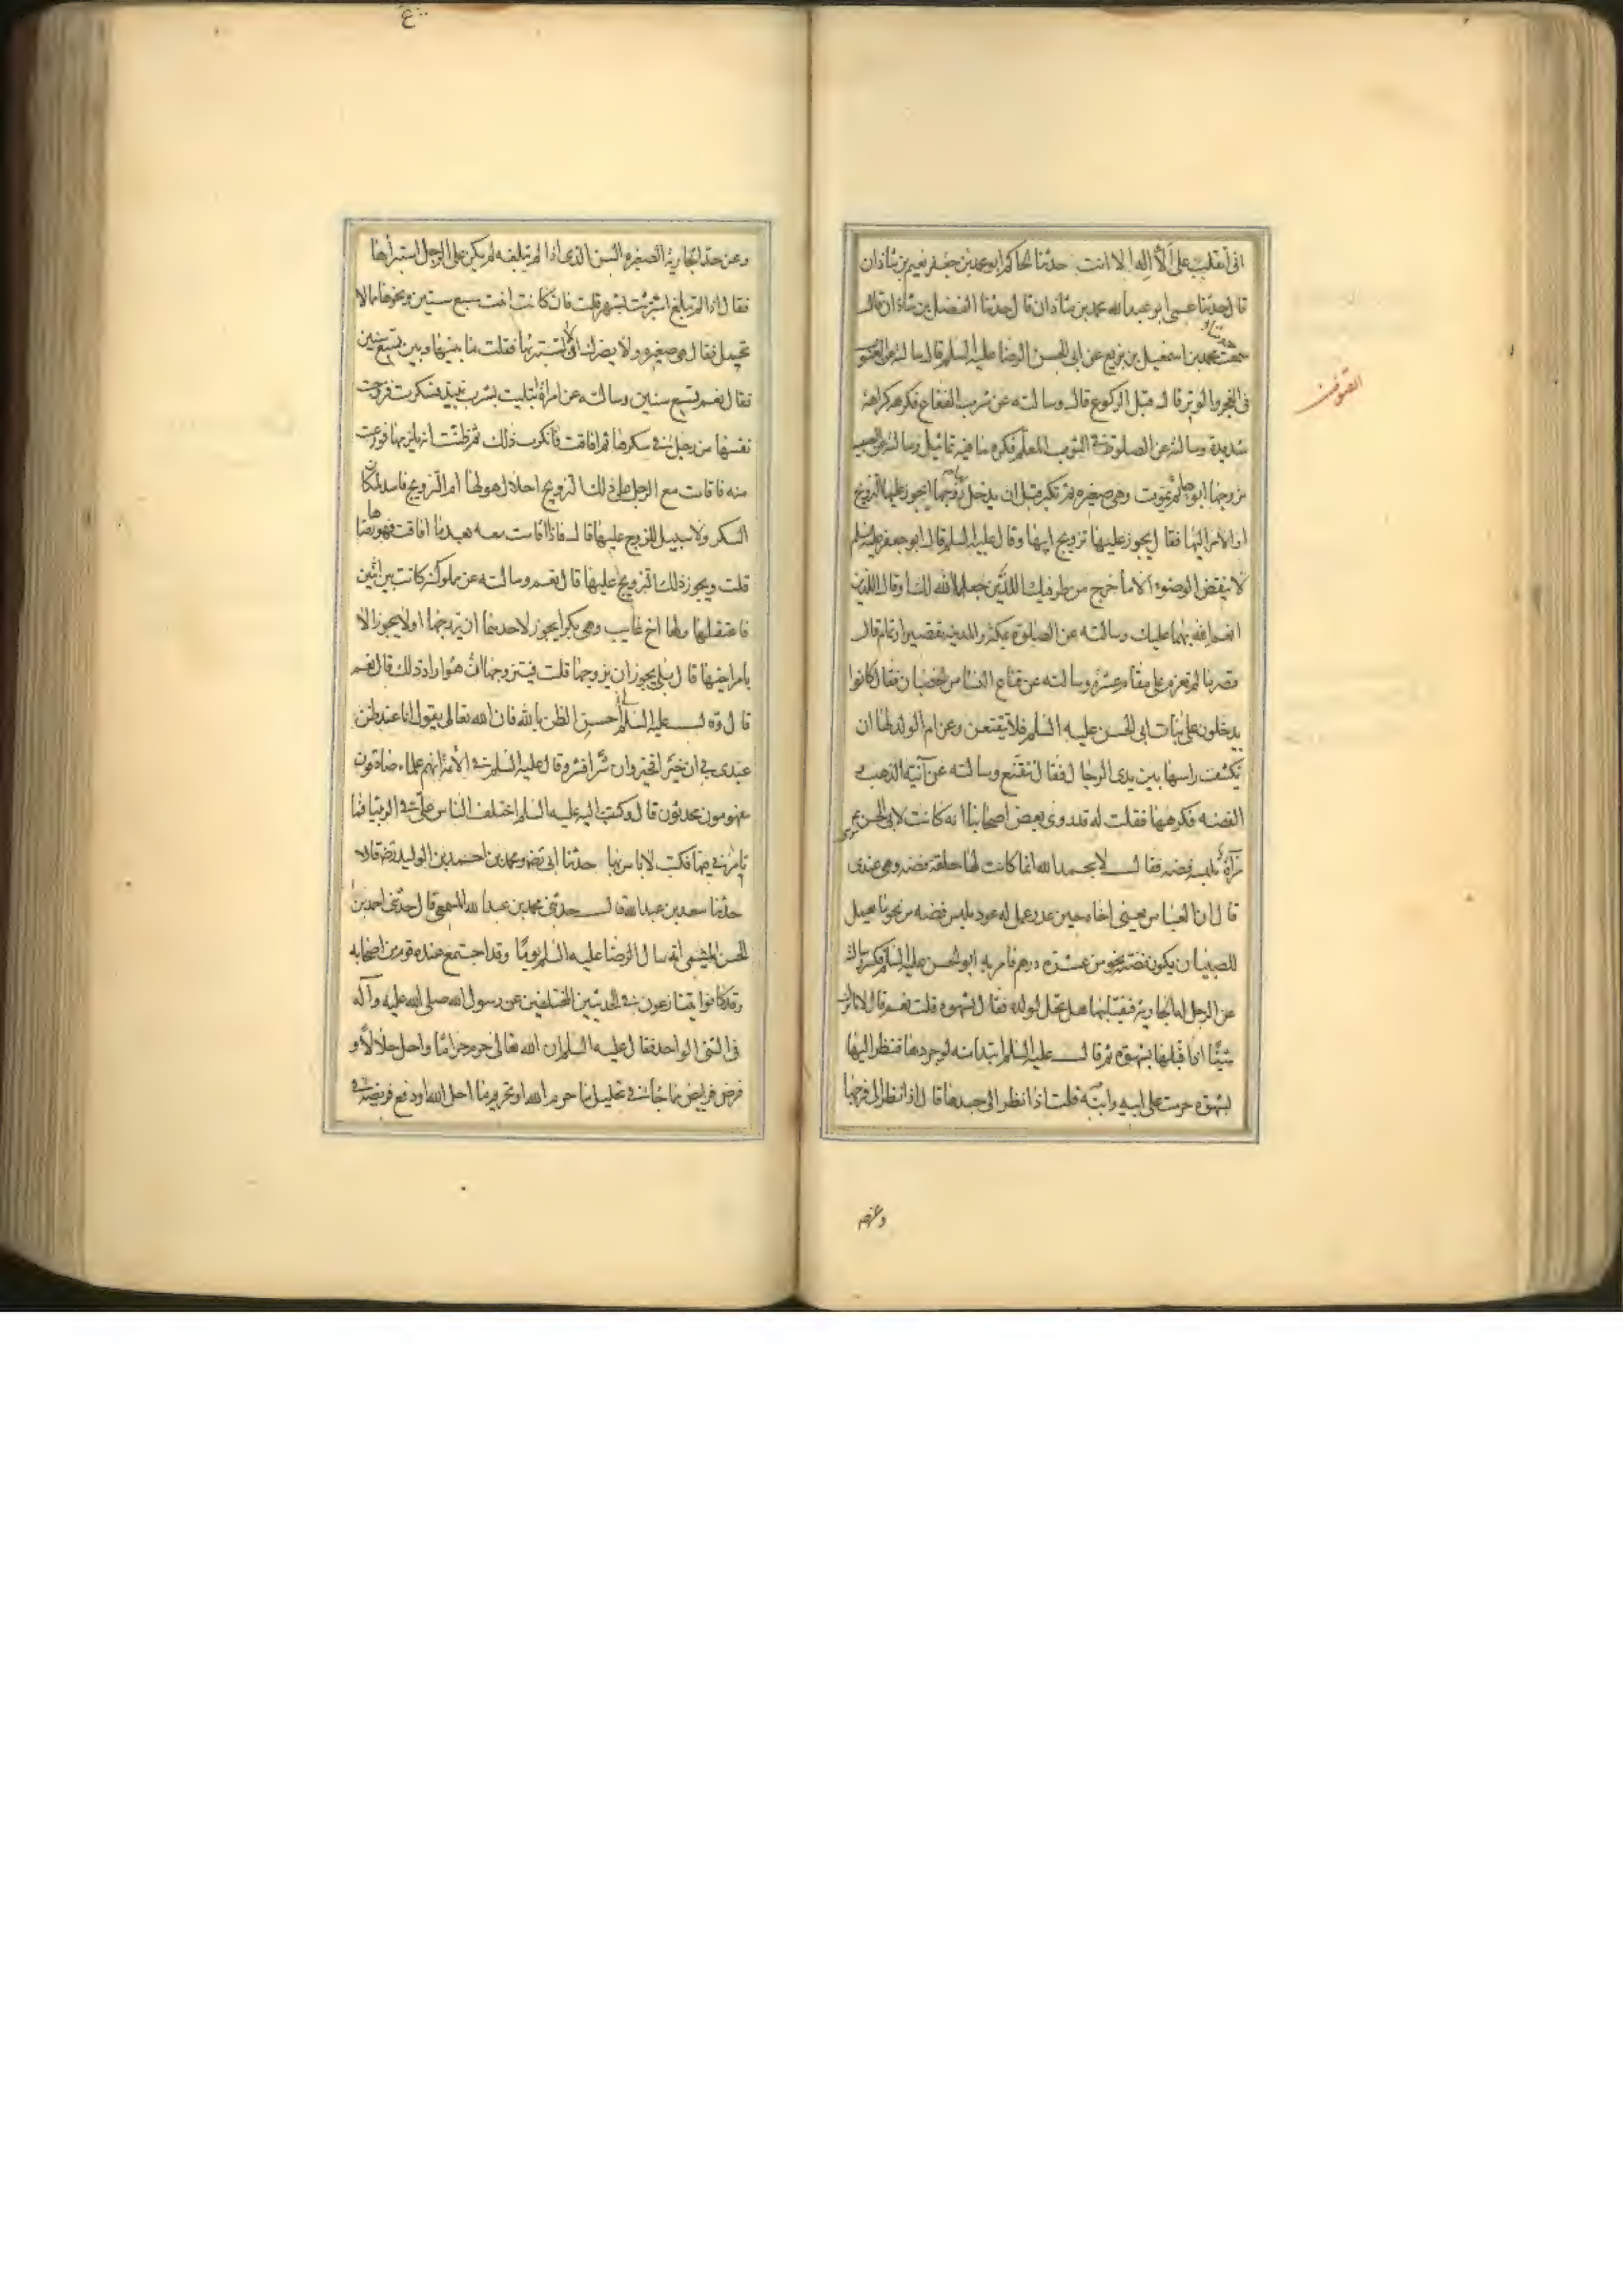 انى اتقلب على الا اله الا انت حدثنا الحاكم ابو محمد بن جعفر نعيم بن شاذان
قال حدثنا عمى ابو عبد الله محمد بن شاذان قال حدثنا الفضل بن شاذان قال
سمعت محمد بن اسمعيل بن بزيع عن ابى الحسن الرضا عليه السلم قال سالته عن القنوت
فى الفجر والوتر قال قبل الركوع قال وسالته عن شرب الفقاع فكرهه كراهة
شديدة وسالته عن الصلوة فى الثوب المعلم فكره ما فيه تماثيل وسالته عن الصبية
يزوجها ابوها ثم يموت وهى صغيره ثم تكبر قبل ان يدخل بها زوجها ايجوز عليها التزويج
او الامر اليها فقال يجوز عليها تزويج ابيها وقال عليه السلم قال ابو جعفر عليه السلم
لا ينقض الوضوء الا ما خرج من طرفيك اللذين جعل الله لك او قال اللذين
انعم الله بهما عليك وسالته عن الصلوة بمكة والمدينه بتقصير او تمام قال
قصر ما لم تعزم على مقام عشرة وسالته عن قناع النساء من الخصيان فقال كانوا
يدخلون على بنات ابى الحسن عليه السلم فلا يتقنعن وعن ام الولد لها ان
تكشف راسها بين يدى الرجال فقال تتقنع وسالته عن آنية الذهب و
الفضه فكرهها فقلت له قد روى بعض اصحابنا انه كانت لابى الحسن موسى
مرآة ملبسه فضه فقال لا بحمد الله انما كانت لها حلقة فضه وهى عندى
قال ان العباس يعنى اخاه حين عذر عمل له عود ملبس فضه من نحو ما يعمل
للصبيان يكون فضته نحو من عشرة درهم فامر به ابو الحسن عليه السلم فكسر وسالته
عن الرجل له الجارية فيقبلها هل تحل لولده فقال بشهوه قلت نعم قال لا ما ترك
شيئا اذا قبلها بشهوة ثم قال عليه السلم ابتدا منه لو جردها فنظر اليها
بشهوة حرمت على ابيه وابنه قلت اذا نظر الى جسدها قال اذا نظر الى فرجها
وعن حد
القنوت
وعن حد الجارية الصغيره السن الذى اذا لم تبلغه لم يكن على الرجل استبراؤها
فقال اذا لم تبلغ استبرئت بشهر قلت فان كانت ابنت سبع سنين ونحوها مما لا
تحمل فقال هى صغيره ولا يضرك ان لا تستبرئها فقلت ما بينها وبين تسع سنين
فقال نعم تسع سنين وسالته عن امراة ابتليت بشرب نبيذ فسكرت فزوجت
نفسها من رجل فى سكرها ثم افاقت فانكرت ذلك ثم ظنت انه يلزمها فورعت
منه فاقامت مع الرجل على ذلك التزويج احلال هو لها ام التزويج فاسد لمكان
السكر ولا سبيل للزوج عليها قال فاذا اقامت معه بعد ما افاقت فهو رضاها
قلت ويجوز ذلك التزويج عليها قال نعم وسالته عن مملوكة كانت بين اثنين
فاعتقلها ولها اخ غايب وهى بكر ايجوز لاحدهما ان يزوجها او لا يجوز الا
بامر اخيها قال بلى يجوز ان يزوجها قلت فيتزوجها ان هو اراد ذلك قال نعم
قال وقال عليه السلم احسن الظن بالله فان الله تعالى يقول انا عند ظن
عبدى بى ان خيرا فخير وان شرا فشر وقال عليه السلم فى الائمة انهم علماء صادقون
مفهمون محدثون قال وكتبت اليه عليه السلم اختلف الناس على فى الربيثا فما
تامرنى فيها فكتب لا باس بها حدثنا ابى رضه ومحمد بن احسن بن احمد بن الوليد رضه قالا
حدثنا سعد بن عبد الله قال حدثنى محمد بن عبد الله المسمعى قال حدثنى احمد بن
الحسن الميثمى انه سال الرضا عليه السلم يوما وقد اجتمع عنده قوم من اصحابه
وقد كانوا يتنازعون فى الحديثين المختلفين عن رسول الله صلى الله عليه وآله
فى الشئ الواحد فقال عليه السلم ان الله تعالى حرم حراما واحل حلالا و
فرض فرايض فما جاء فى تحليل ما حرم الله او تحريم ما احل الله او دفع فريضة فى